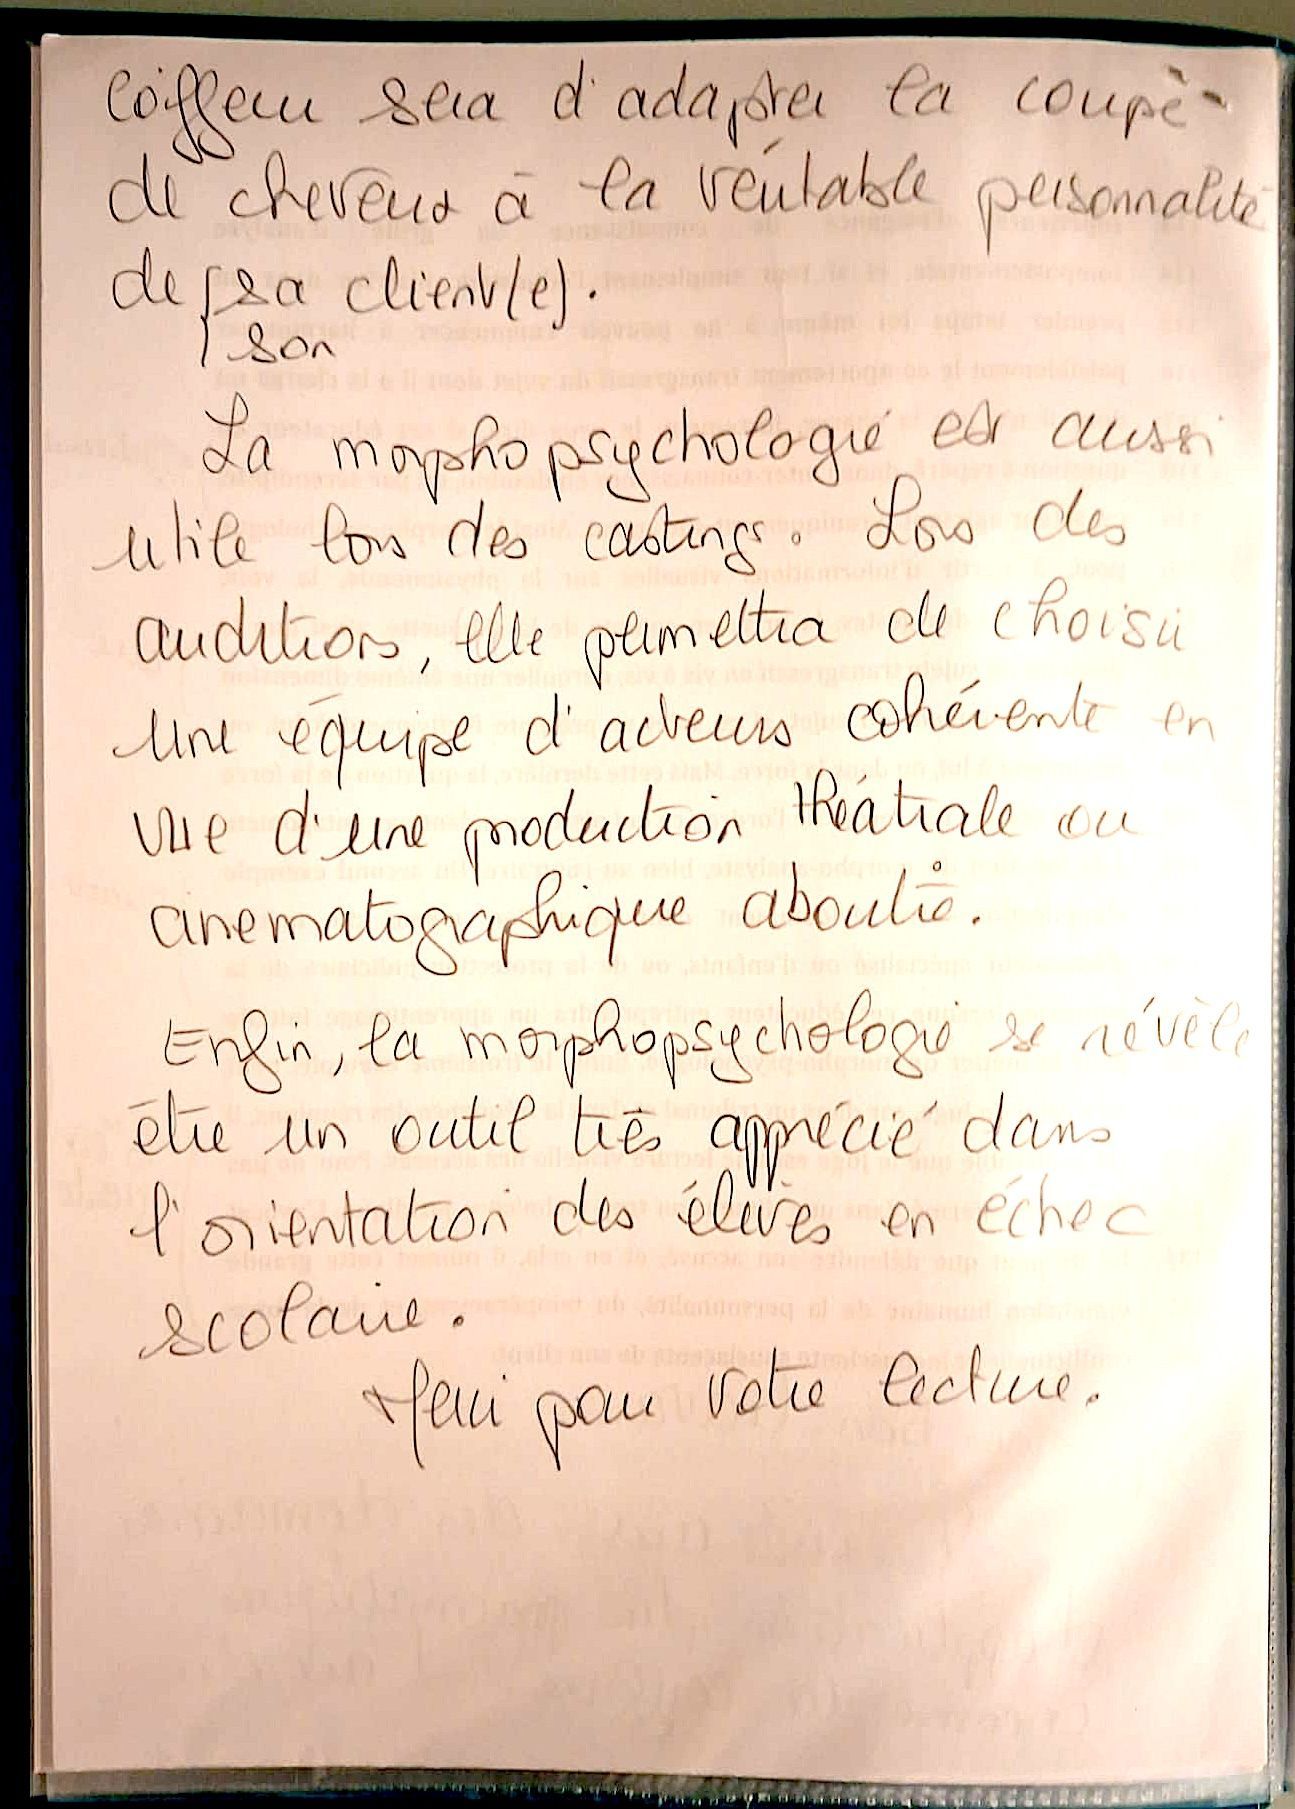 coiffeur sera d'adapter la coupe
de cheveux à la véritable personnalité
de sa client(e).
son
La morphopsychologie est aussi
utile lors des castings. Lors des
auditions, elle permettra de choisir
une équipe d'acteurs cohérente en
vue d'une production théâtrale ou
cinematographique aboutie.
Enfin, la morphopsychologie se révèle
être un outil très apprécié dans
l'orientation des élèves en échec
scolaire.
Merci pour votre lecture.